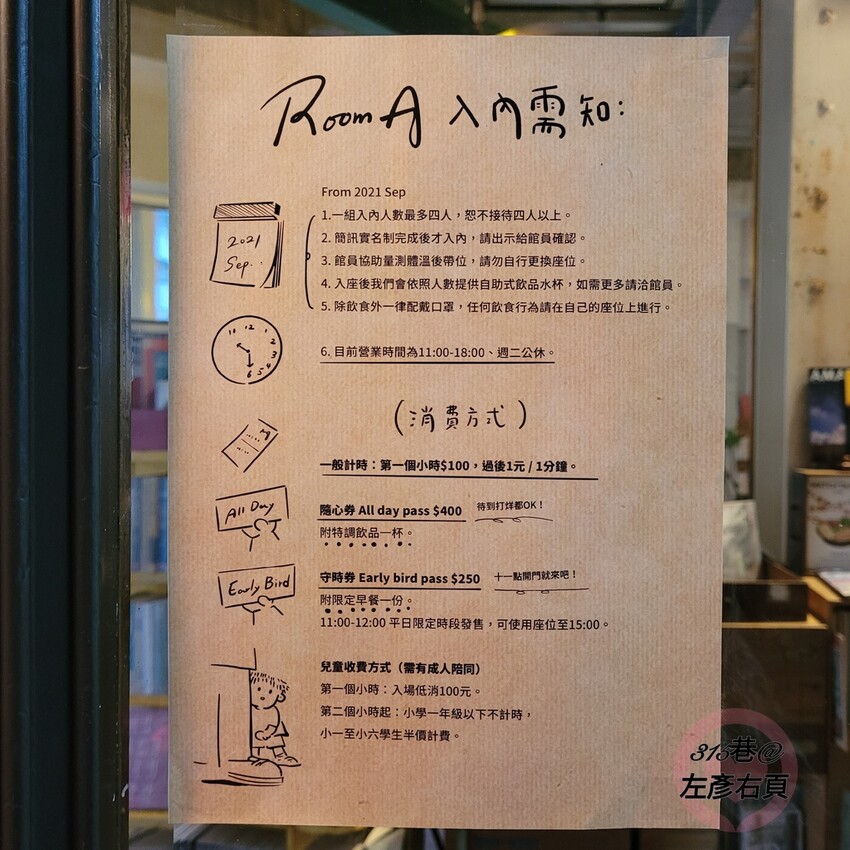 Room A 入內需知:
From 2021 Sep
2021
Sep.
1.一組入內人數最多四人，恕不接待四人以上。
2. 簡訊實名制完成後才入內，請出示給館員確認。
3. 館員協助量測體溫後帶位，請勿自行更換座位。
4. 入座後我們會依照人數提供自助式飲品水杯，如需更多請洽館員。
5. 除飲食外一律配戴口罩，任何飲食行為請在自己的座位上進行。
11 12 1
2
3
4
5
6
6. 目前營業時間為11:00-18:00、週二公休。
(消費方式)
一般計時：第一個小時$100，過後1元 / 1分鐘。
All Day
隨心券 All day pass $400 待到打烊都OK！
附特調飲品一杯。
Early Bird
守時券 Early bird pass $250 十一點開門就來吧！
附限定早餐一份。
11:00-12:00 平日限定時段發售，可使用座位至15:00。
兒童收費方式（需有成人陪同）
第一個小時：入場低消100元。
第二個小時起：小學一年級以下不計時，
小一至小六學生半價計費。
315巷@
左彥右頁